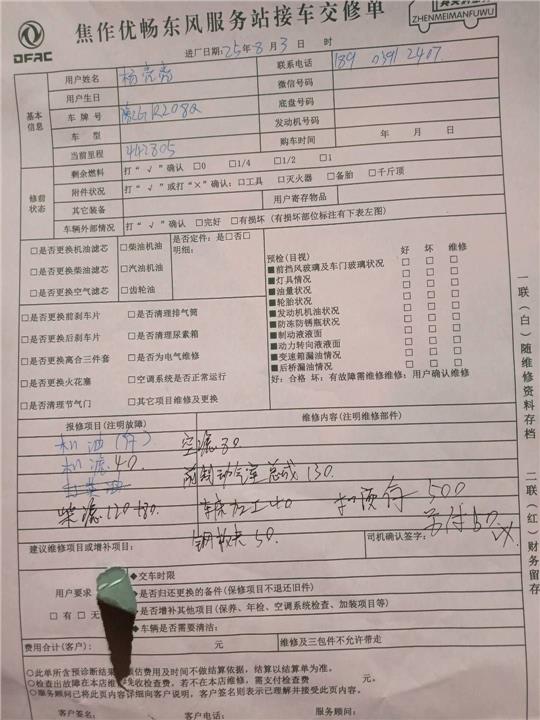 焦作优畅东风服务站接车交修单
DFAC
ZHENMEIMANFUWU
进厂日期:25年8月3日 时
基本信息
用户姓名 杨亮亮 联系电话 189 0391 2407
用户生日 微信号码
车牌号 底盘号码
车型 发动机号码
当前里程 442805 购车时间 年 月 日
修前状态
剩余燃料 打“√”确认 □0 □1/4 □1/2 □1
附件状况 打“√”或打“×”确认:□工具 □灭火器 □备胎 □千斤顶
其它装备 用户寄存物品
车辆外部情况 打“√”确认 □完好 □有损坏(有损坏部位标注有下表左图)
□是否更换机油滤芯 □柴油机油 是否定件:是□否□
明细:
□是否更换柴油滤芯 □汽油机油
□是否更换空气滤芯 □齿轮油
预检(目视) 好 坏 维修
■前挡风玻璃及车门玻璃状况 □ □ □
■灯具情况 □ □ □
■油量状况 □ □ □
■轮胎状况 □ □ □
■发动机机油状况 □ □ □
■防冻防锈瓶状况 □ □ □
■制动液液面 □ □ □
■动力转向液液面 □ □ □
■变速箱漏油情况 □ □ □
■后桥漏油情况 □ □ □
好:合格 坏:有故障需维修维修:用户确认维修
□是否更换前刹车片 □是否清理排气筒
□是否更换后刹车片 □是否清理尿素箱
□是否更换离合三件套 □是否为电气维修
□是否更换火花塞 □空调系统是否正常运行
□是否清理节气门 □其它项目维修及更换
报修项目(注明故障) 维修内容(注明维修部件)
机油 空滤80
机滤40. 前制动气室总成130.
柴滤120+80. 车床加工40 扣预存500
钢板夹50. 另付50
建议维修项目或增补项目: 司机确认签字:
用户要求
□有□无
◆交车时限
◆是否归还更换的备件(保修项目不退还旧件)
◆是否增补其他项目(保养、年检、空调系统检查、加装项目等)
◆车辆是否需要清洁:
费用合计(客户): 元 维修及三包件不允许带走
○此单所含预诊断结果 预估费用及时间不做结算依据,结算以结算单为准。
○检查出故障在本店维修免收检查费,若不在本店维修,需支付检查费 元。
○服务顾问已将此页内容详细向客户说明,客户签名则表示已理解并接受此页内容。
客户签名: 客户电话: 服务顾问:
一联(白)随维修资料存档 二联(红)财务留存